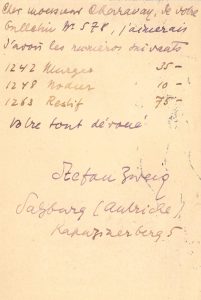 Cher monsieur Charavay, de votre
Bulletin Nº 578, j'aimerais
d'avoir les numéros suivants
1242 35 -
1248 Nodier 10 -
1263 Restif 75 -
Votre tout dévoué
Stefan Zweig
Salzburg (Autriche),
Kapuzinerberg 5